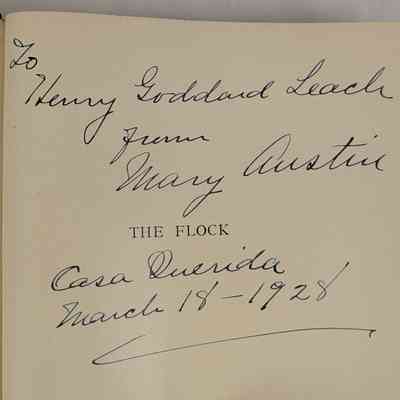 To
Henry Goddard Leach
from
Mary Austin
THE FLOCK
Casa Querida
March 18 - 1928